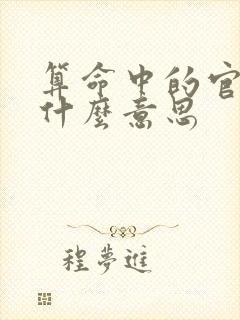 算命中的官
什麼意思
程夢進